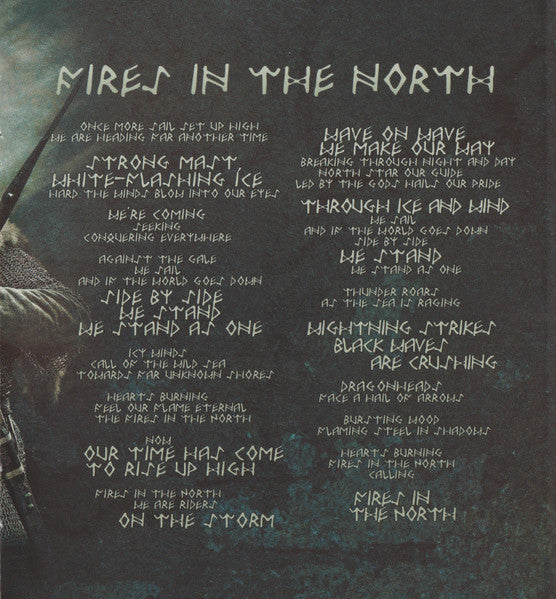 FIRES IN THE NORTH
ONCE MORE SAIL SET UP HIGH
WE ARE HEADING FAR ANOTHER TIME
STRONG MAST,
WHITE-FLASHING ICE
HARD THE WINDS BLOW INTO OUR EYES
WE'RE COMING
SEEKING
CONQUERING EVERYWHERE
AGAINST THE GALE
WE SAIL
AND IF THE WORLD GOES DOWN
SIDE BY SIDE
WE STAND
WE STAND AS ONE
ICY WINDS
CALL OF THE WILD SEA
TOWARDS FAR UNKNOWN SHORES
HEARTS BURNING
FEEL OUR FLAME ETERNAL
THE FIRES IN THE NORTH
NOW
OUR TIME HAS COME
TO RISE UP HIGH
FIRES IN THE NORTH
WE ARE RIDERS
ON THE STORM
WAVE ON WAVE
WE MAKE OUR WAY
BREAKING THROUGH NIGHT AND DAY
NORTH STAR OUR GUIDE
LED BY THE GODS HAILS OUR PRIDE
THROUGH ICE AND WIND
WE SAIL
AND IF THE WORLD GOES DOWN
SIDE BY SIDE
WE STAND
WE STAND AS ONE
THUNDER ROARS
AS THE SEA IS RAGING
WIGHTNING STRIKES
BLACK WAVES
ARE CRUSHING
DRAGONHEADS
FACE A HAIL OF ARROWS
BURSTING WOOD
FLAMING STEEL IN SHADOWS
HEARTS BURNING
FIRES IN THE NORTH
CALLING
FIRES IN
THE NORTH